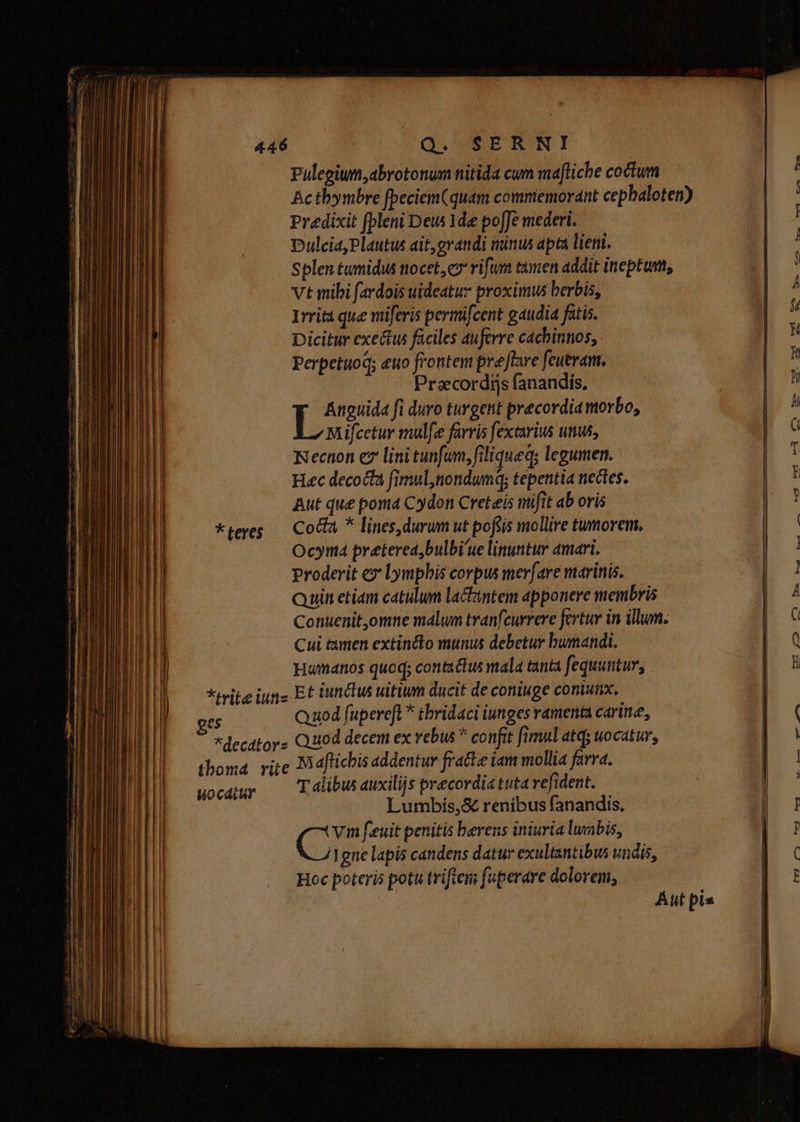 446 Q. SERNI
Pulegium,abrotonum nitida cum maſtiche coctum
Ac thymbre ſpeciem(quam commemorant cephaloten)
Prædixit ſpleni Deus Idæ poſſe mederi.
Dulcia,Plautus ait,grandi minus apta lieni.
Splen tumidus nocet,& riſum tamen addit ineptum,
Vt mihi ſardois uideatur proximus herbis,
Irrita quæ miſeris permiſcent gaudia fatis.
Dicitur exectus faciles auferre cachinnos,
Perpetuoq́; æuo frontem præſtare ſeueram.
Præcordijs ſanandis.
LAnguida ſi duro turgent præcordia morbo,
Miſcetur mulſæ farris ſextarius unus,
Necnon & lini tunſum,ſiliquæq; legumen.
Hæc decocta ſimul,nondumq; tepentia nectes.
Aut quæ poma Cydon Cretæis miſit ab oris
*teres Cocta * lines,durum ut poſsis mollire tumorem.
Ocyma præterea,bulbi´ue linuntur amari.
Proderit & lymphis corpus merſare marinis.
Quin etiam catulum lactantem apponere membris
Conuenit,omne malum tranſcurrere fertur in illum.
Cui tamen extincto munus debetur humandi.
Humanos quoq; contactus mala tanta ſequuntur,
*tritæ iun= Et iunctus uitium ducit de coniuge coniunx.
ges Quod ſupereſt * thridaci iunges ramenta carinæ,
*decator= Quod decem ex rebus * confit ſimul atq; uocatur,
thoma rite Maſtichis addentur fractæ iam mollia farra.
uocatur Talibus auxilijs præcordia tuta reſident.
Lumbis,& renibus ſanandis.
CVm ſeuit penitis hærens iniuria lumbis,
Igne lapis candens datur exultantibus undis,
Hoc poteris potu triſtem ſuperare dolorem,
Aut pis